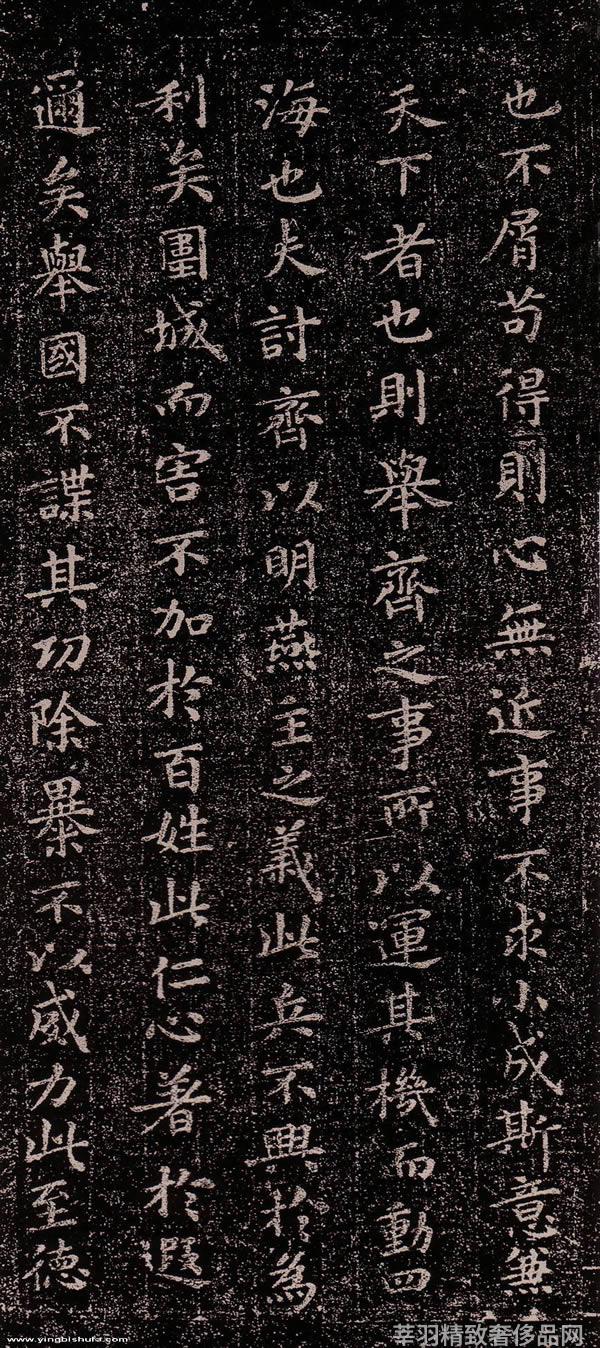 也不屑苟得則心無近事不求小成斯意兼
天下者也則舉齊之事所以運其機而動四
海也夫討齊以明燕主之義此兵不興於為
利矣圍城而害不加於百姓此仁心著於遐
邇矣舉國不謀其功除暴不以威力此至德
www.yingbishufa.com
莘羽精致奢侈品网